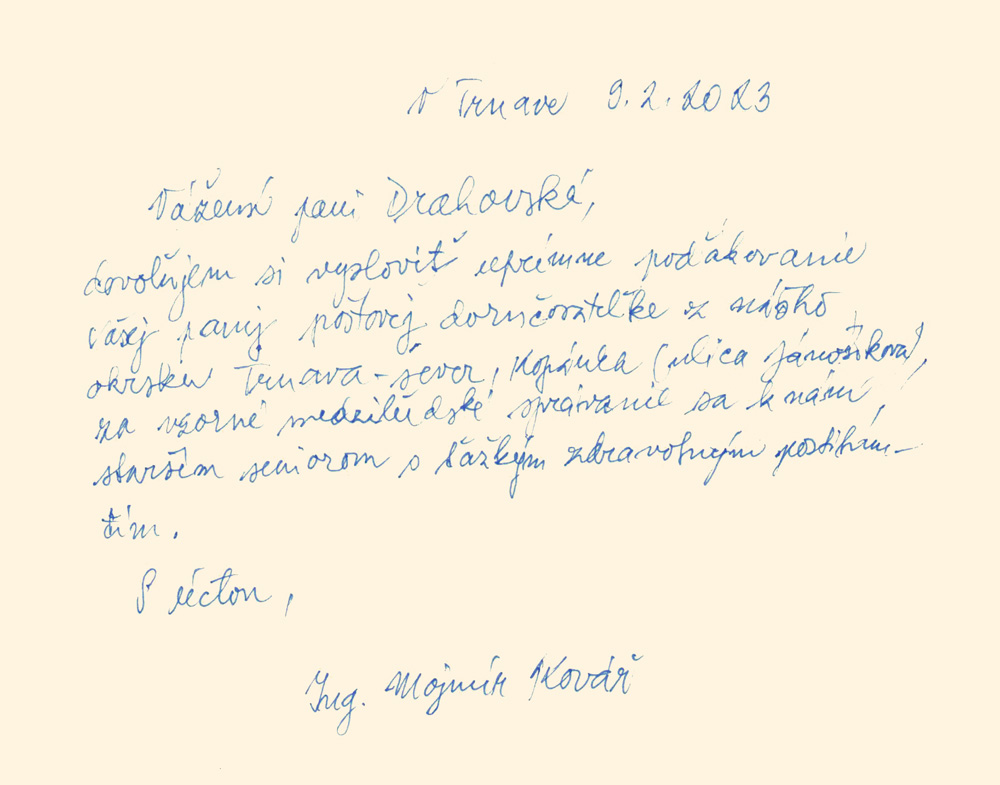 V Trnave 9.2.2023
Vážená pani Drahovská,
dovoľujem si vysloviť úprimné poďakovanie
Vašej panej poštovej doručovateľke z nášho
okrsku Trnava-sever, Kopánka (ulica Jánošíkova),
za vzorné medziľudské správanie sa k nám,
starším seniorom s ťažkým zdravotným postihnu-
tím.
S úctou,
Ing. Mojmír Kovář